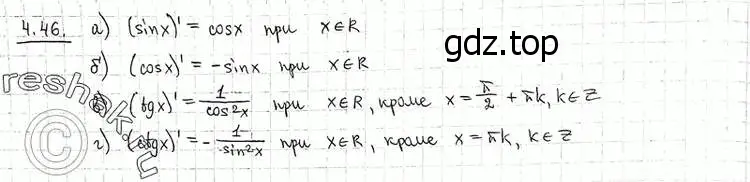 4.46. а) (sinx)' = cosx при x∈R
gdz.top
б) (cosx)' = -sinx при x∈R
в) (tgx)' = 1/cos²x при x∈R, кроме x = π/2 + πk, k∈Z
г) (ctgx)' = - 1/sin²x при x∈R, кроме x = πk, k∈Z
© reshak.ru